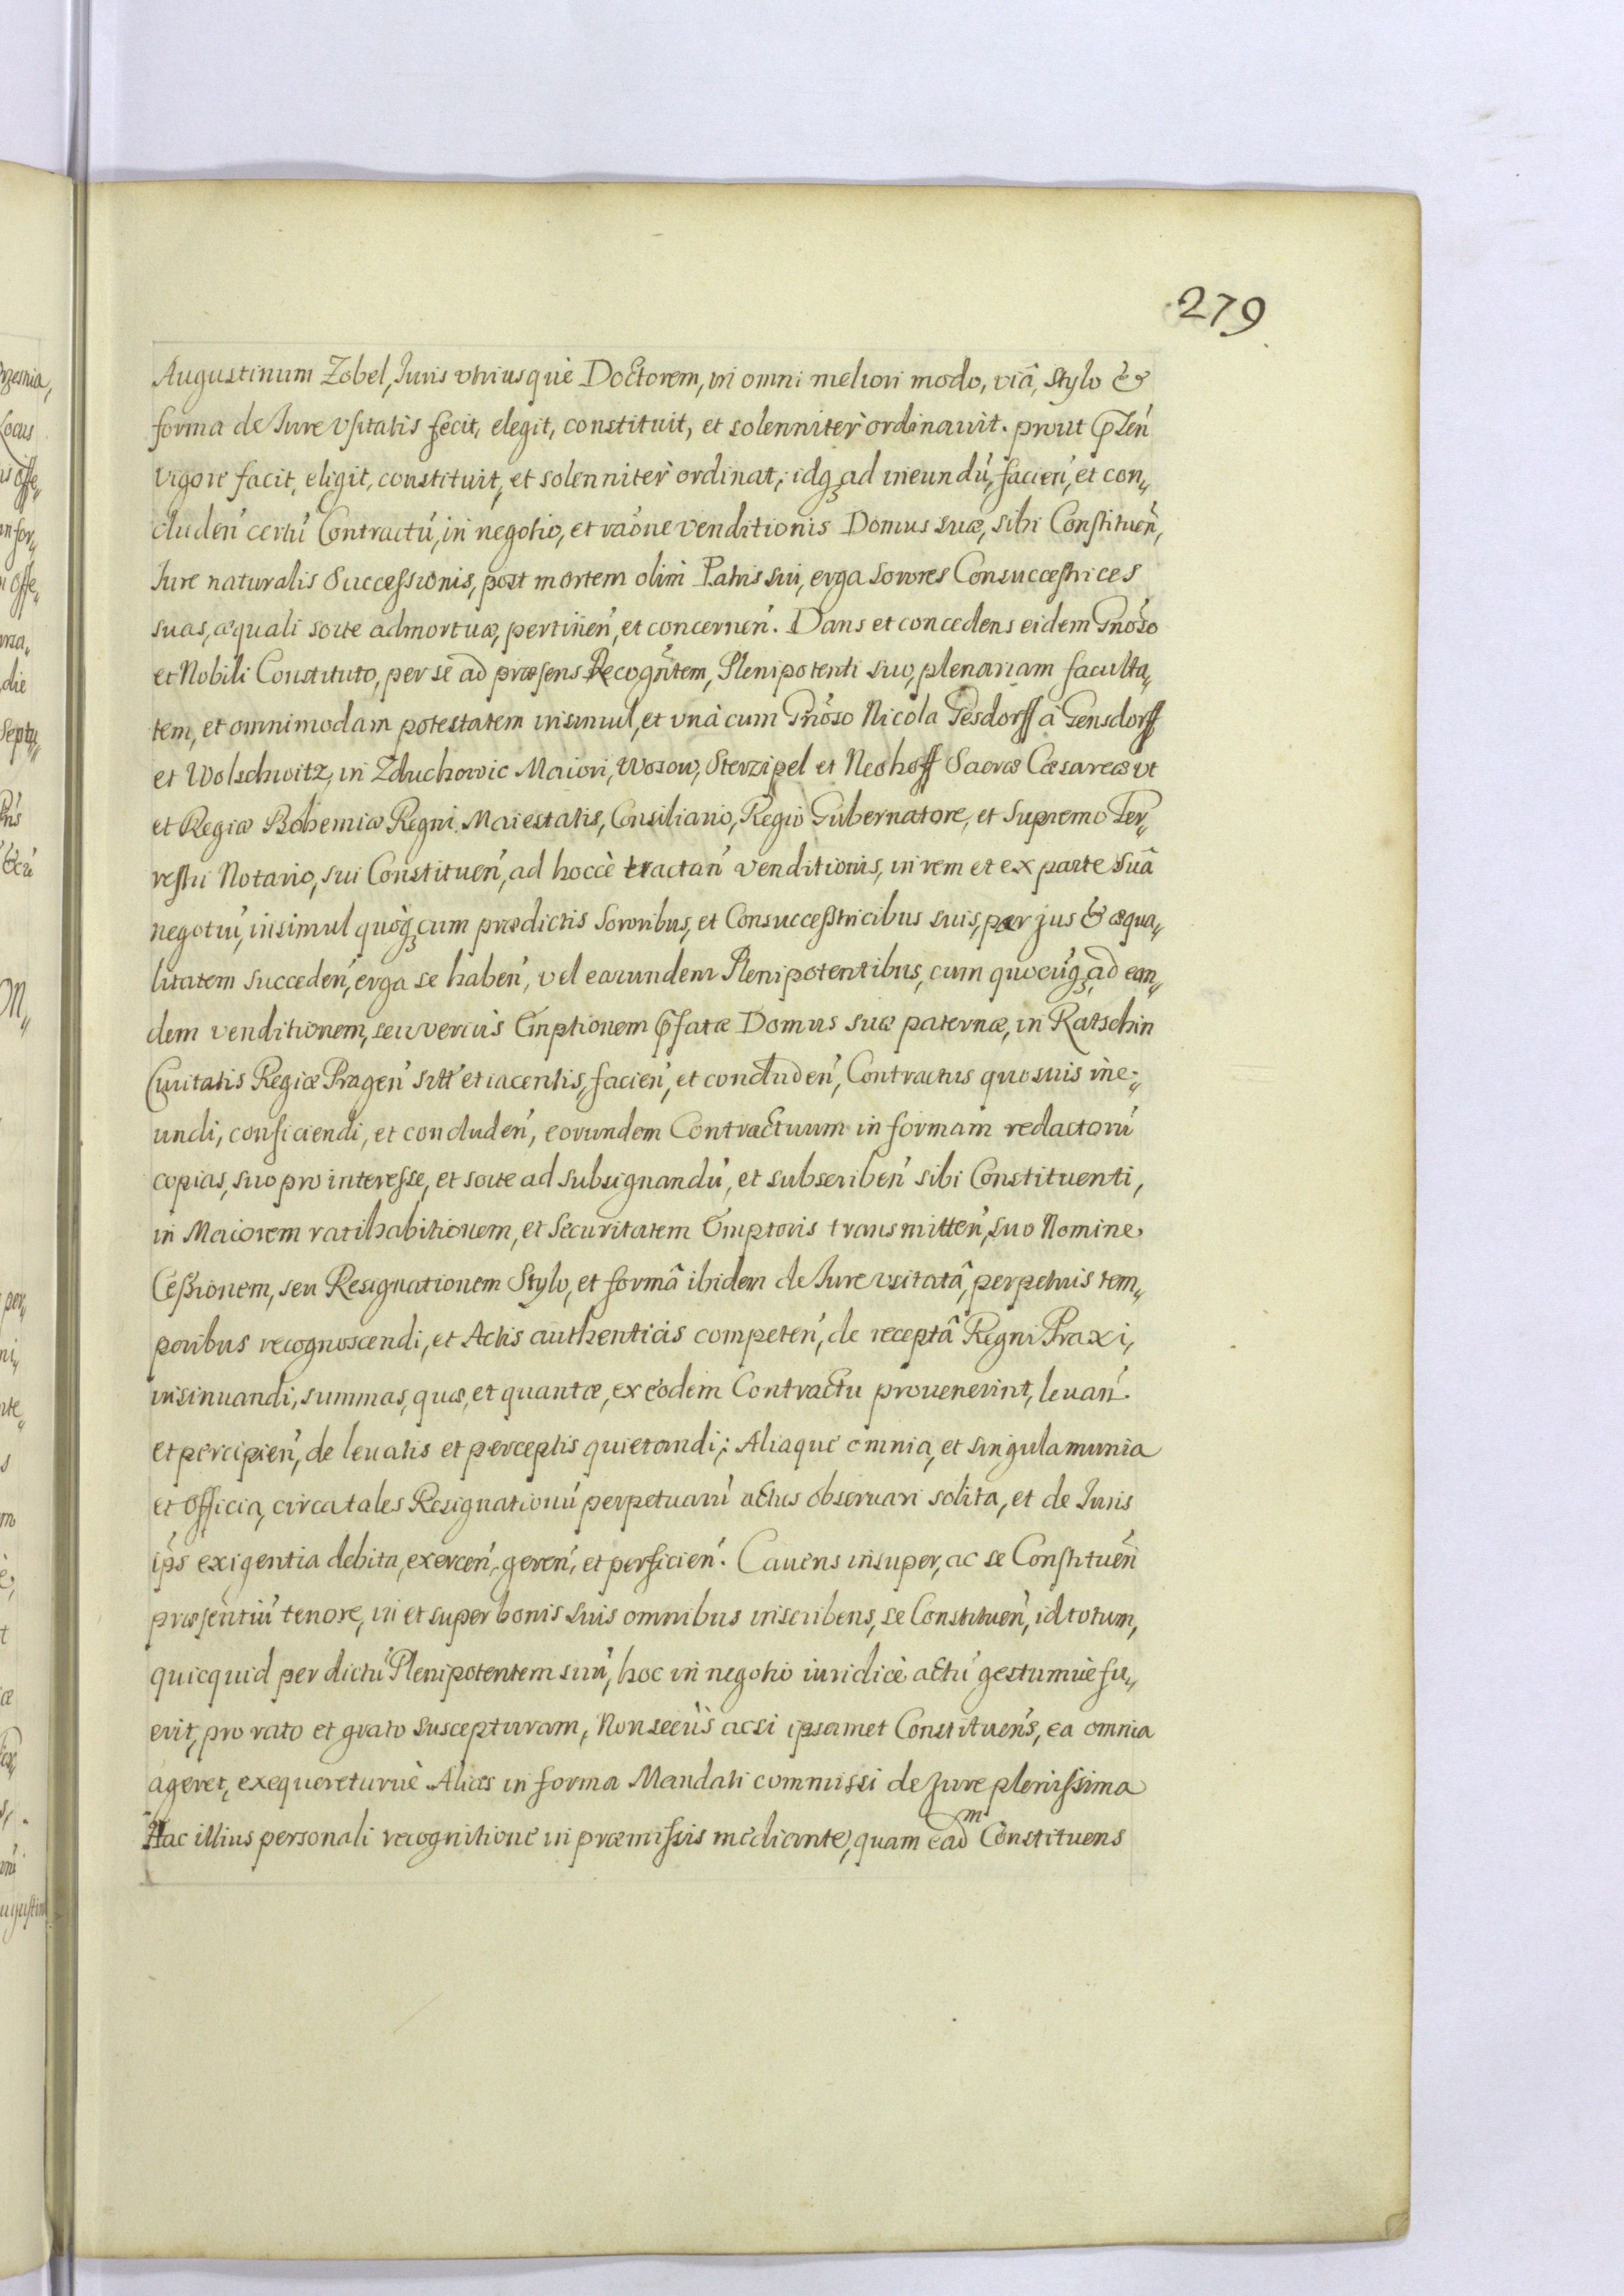 279
Augustinum Zobel, Iuris vtriusquè Doctorem, in omni meliori modo, viâ, Stylo &
forma de Iure vsitatis fecit, elegit, constituit, et solennitèr ordinauit. prout
vigore facit, eligit, constituit, et solennitèr ordinat; idq́ꝫ ad ineundú, facień, et con„
cludeń certú Contractú, in negotio, et raóne venditionis Domus suæ, sibi Constitueñ,
Iure naturalis Successionis, post mortem olim Patris sui, erga sorores Consuccestrices
suas, æquali sorte admortuæ, pertineń, et concerneń. Dans et concedens eidem Gnóso
et Nobili Constituto, per se ad præsens Recogñtem, Plenipotenti suo, plenariam faculta„
tem, et omnimodam potestatem insimul, et vnà cum Gnóso Nicola Gesdorff à Gensdorff
et Wolschwitz, in Zduchowic Maiori, Wosow, Sterzipel et Neohoff Sacræ Cæsareæ vt
et Regiæ Bohemiæ Regni Maiestatis, Consiliario, Regio Gubernatore, et Supremo Ter„
restri Notario, sui Constitueń, ad hoccè tractań venditionis, in rem et ex parte suâ
negotiú, insimul quoq́ꝫ cum prædictis Sororibus, et Consuccestricibus suis, per jus & æqua„
litatem succedeń, erga se habeń, vel earundem Plenipotentibus, cum quocúqꝫ ad ean„
dem venditionem, seu veriùs Emptionem ꝓfatæ Domus suæ paternæ, in Ratschin
Ciuitatis Regiæ Prageń sitæ et iacentis, facień, et concludeń, Contractus quosuis ine„
undi, conficiendi, et concludeń, eorundem Contractuum in formam redactorú
copias, suo pro interesse, et sorte ad subsignandú, et subscribeń sibi Constituenti,
in Maiorem ratihabitionem, et Securitatem Emptoris transmitteń, suo Nomine
Cessionem, seu Resignationem Stylo, et formâ ibidem de Iure vsitatâ, perpetuis tem„
poribus recognoscendi, et Actis authenticis competeń, de receptâ Regni Praxi,
insinuandi, summas, quæ, et quantæ, ex eodem Contractu prouenerint, leuań
et percipień, de leuatis et perceptis quietandi; Aliaque omnia, et singula munia
et officia, circa tales Resignationú perpetuarú actus obseruari solita, et de Iuris
ip̃s exigentia debita, exerceń, gereń, et perficień. Cauens insuper, ac se Constitueñ
præsentiú tenore, in et super bonis suis omnibus inscribens, se Constitueń, id totum,
quicquid per dictú Plenipotentem suú, hoc in negotio iuridicè actú gestumuè fu„
erit, pro rato et grato suscepturam, Non secùs ac si ipsamet Constituens, ea omnia
ageret, exequereturuè Alias in forma Mandati commissi de Iure plenissima
Hac illius personali recognitione in præmissis mediante, quam eadm Constituens